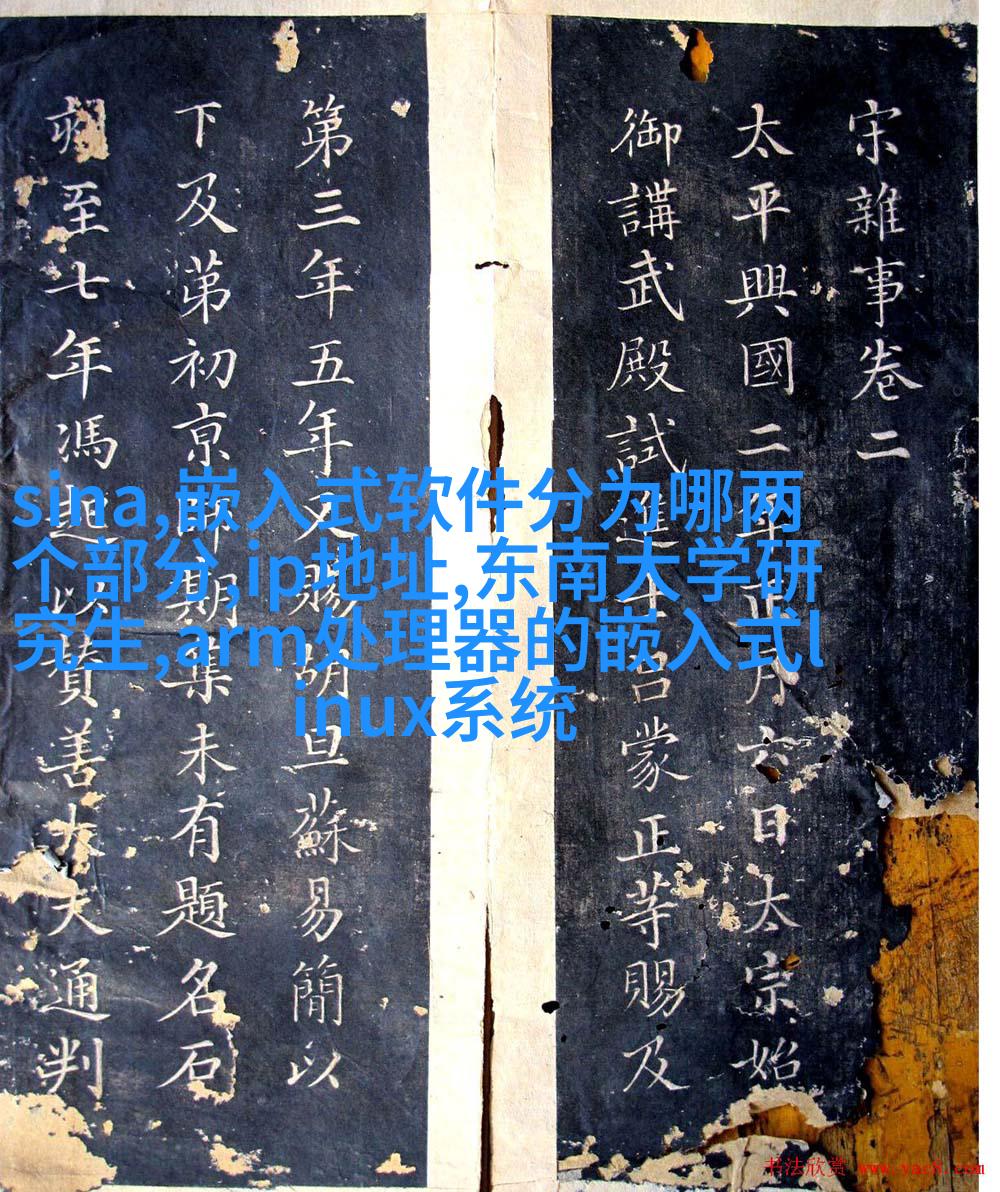 宋雜事卷二
太平興國二年正月六日太宗始
御講武殿試進士吕蒙正等賜及
第三年五年又賜胡旦蘇易簡以
下及苐初京師期集未有題名石
至七年馮起以贊善大夫通判
sina,嵌入式软件分为哪两
个部分,ip地址,东南大学研
究生,arm处理器的嵌入式l
inux系统
书法欣赏 www.yac8.com